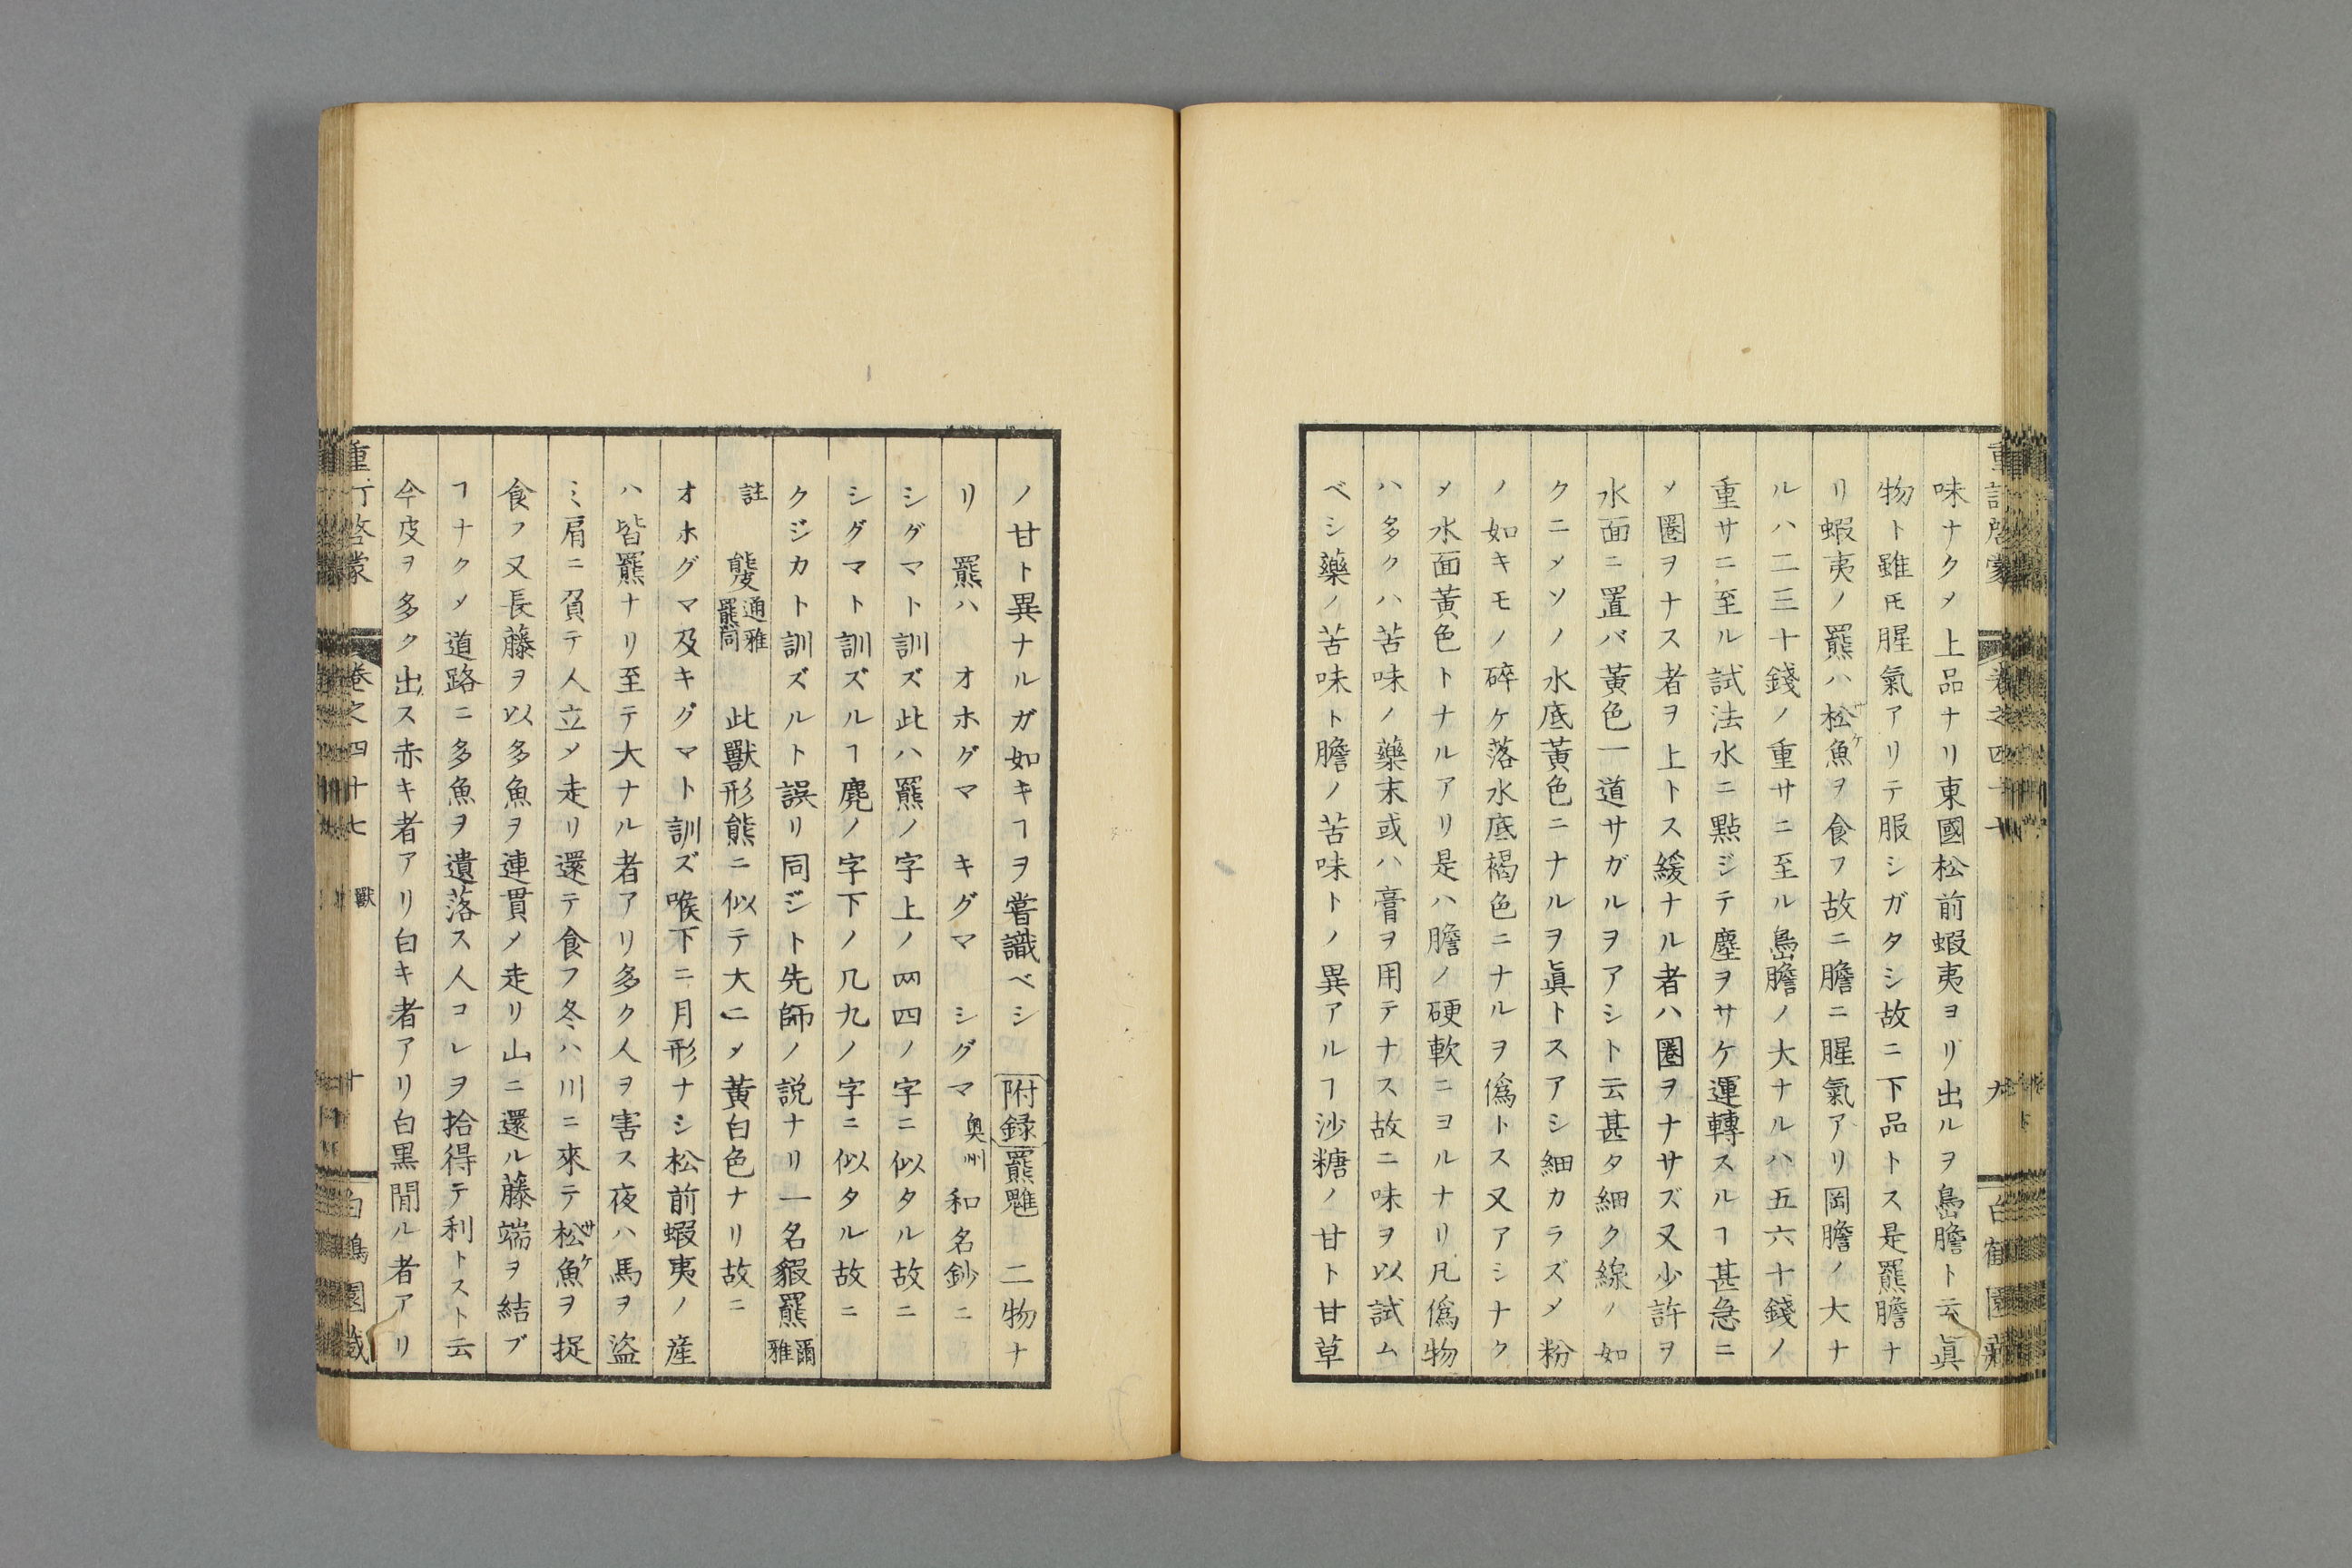 味ナクメ上品ナリ東國松前蝦夷ヨリ出ルヲ島膽ト云眞
物ト雖𪜈腥氣アリテ服シガタシ故ニ下品トス是羆膽ナ
リ蝦夷ノ羆ハ松魚ヲ食フ故ニ膽ニ腥氣アリ岡膽ノ大ナ
ルハ二三十錢ノ重サニ至ル島膽ノ大ナルハ五六十錢ノ
重サニ至ル試法水ニ點ジテ塵ヲサケ運轉スルヿ甚急ニ
メ圏ヲナス者ヲ上トス緩ナル者ハ圏ヲナサズ又少許ヲ
水面ニ置バ黃色一道サガルヲアシト云甚タ細ク線ノ如
クニメソノ水底黃色ニナルヲ眞トスアシ細カラズメ粉
ノ如キモノ碎ケ落水底褐色ニナルヲ僞トス又アシナク
メ水面黃色トナルアリ是ハ膽ノ硬軟ニヨルナリ凡僞物
ハ多クハ苦味ノ藥末或ハ膏ヲ用テナス故ニ味ヲ以試ム
ベシ藥ノ苦味ト膽ノ苦味トノ異アルヿ沙糖ノ甘ト甘草
ノ甘ト異ナルガ如キヿヲ嘗識ベシ 附録 羆魋 二物ナ
リ 羆ハ オホグマ キグマ シグマ 奥州 和名鈔ニ
シグマト訓ズ此ハ羆ノ字上ノ罒四ノ字ニ似タル故ニ
シグマト訓ズルヿ麂ノ字下ノ几九ノ字ニ似タル故ニ
クジカト訓ズルト誤リ同ジト先師ノ説ナリ一名貑羆 爾雅
註 通雅羆同 此獸形熊ニ似テ大ニメ黃白色ナリ故ニ
オホグマ及キグマト訓ズ喉下ニ月形ナシ松前蝦夷ノ産
ハ皆羆ナリ至テ大ナル者アリ多ク人ヲ害ス夜ハ馬ヲ盗
ミ肩ニ負テ人立メ走リ還テ食フ冬ハ川ニ來テ松魚ヲ捉
食フ又長藤ヲ以多魚ヲ連貫メ走リ山ニ還ル藤端ヲ結ブ
ヿナクメ道路ニ多魚ヲ遺落ス人コレヲ拾得テ利トスト云
今皮ヲ多ク出ス赤キ者アリ白キ者アリ白黒間ル者アリ
重訂啓蒙 巻之四十七 獸 十